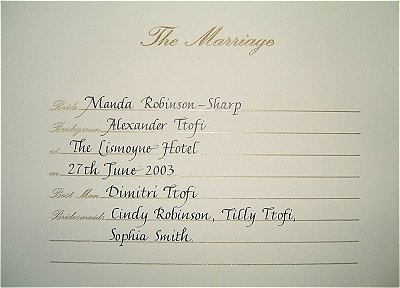 The Marriage
Bride Manda Robinson-Sharp
Bridegroom Alexander Ttofi
at The Lismoyne Hotel
on 27th June 2003
Best Man Dimitri Ttofi
Bridesmaids Cindy Robinson, Tilly Ttofi,
Sophia Smith.